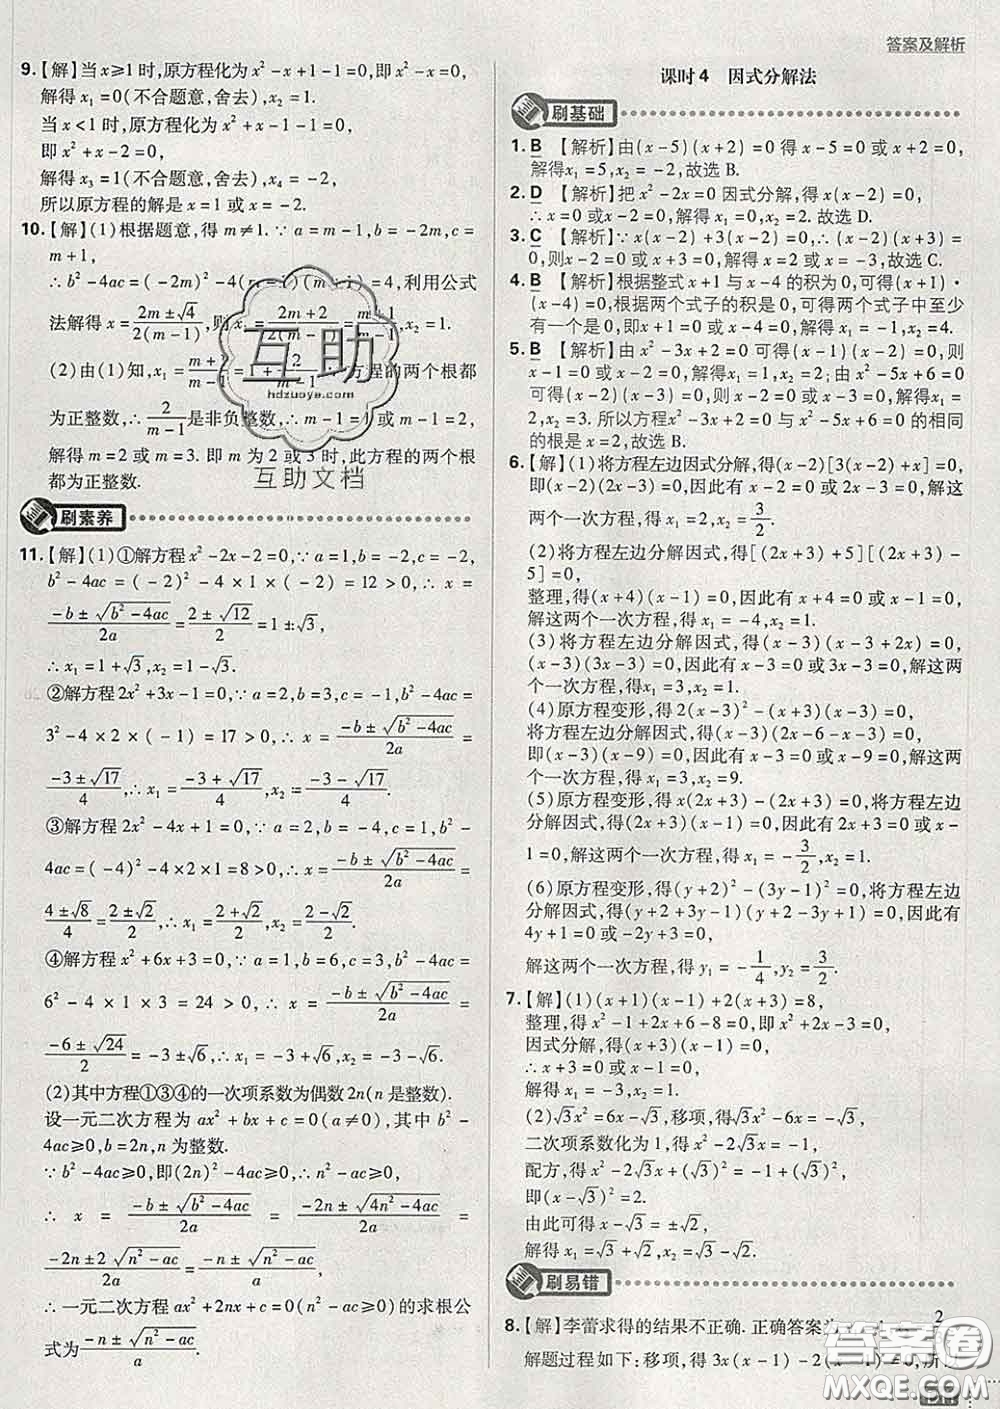 答案及解析
9.【解】当x≥1时,原方程化为x²-x+1-1=0,即x²-x=0,
解得x₁=0(不合题意,舍去),x₂=1.
当x<1时,原方程化为x²+x-1-1=0,
即x²+x-2=0,
解得x₃=1(不合题意,舍去),x₄=-2,
所以原方程的解是x=1或x=-2.
10.【解】(1)根据题意,得m≠1.∵a=m-1,b=-2m,c=
m+1,
∴b²-4ac=(-2m)²-4(m-1)(m+1)=4,利用公式
法解得x=(2m±√4)/(2(m-1)),则x₁=(2m+2)/(2(m-1))=
x₂=1.
(2)由(1)知,x₁=
方程的两个根都
为正整数,∴2/(m-1)是非负整数,∴m-1=1或m-1=2,
解得m=2或m=3.即m为2或3时,此方程的两个根
都为正整数.
刷素养
11.【解】(1)①解方程x²-2x-2=0,∵a=1,b=-2,c=-2,
b²-4ac=(-2)²-4×1×(-2)=12>0,∴x=
(-b±√(b²-4ac))/(2a)=(2±√12)/2=1±√3,
∴x₁=1+√3,x₂=1-√3.
②解方程2x²+3x-1=0,∵a=2,b=3,c=-1,b²-4ac=
3²-4×2×(-1)=17>0,∴x=(-b±√(b²-4ac))/(2a)=
(-3±√17)/4,∴x₁=(-3+√17)/4,x₂=(-3-√17)/4.
③解方程2x²-4x+1=0,∵a=2,b=-4,c=1,b²-
4ac=(-4)²-4×2×1=8>0,∴x=(-b±√(b²-4ac))/(2a)=
(4±√8)/4=(2±√2)/2,∴x₁=(2+√2)/2,x₂=(2-√2)/2.
④解方程x²+6x+3=0,∵a=1,b=6,c=3,b²-4ac=
6²-4×1×3=24>0,∴x=(-b±√(b²-4ac))/(2a)=
(-6±√24)/2=-3±√6,∴x₁=-3+√6,x₂=-3-√6.
(2)其中方程①③④的一次项系数为偶数2n(n是整数).
设一元二次方程为ax²+bx+c=0(a≠0),其中b²-
4ac≥0,b=2n,n为整数.
∵b²-4ac≥0,即(2n)²-4ac≥0,∴n²-ac≥0,
∴x=(-b±√(b²-4ac))/(2a)=(-2n±√(4n²-4ac))/(2a)=
(-2n±2√(n²-ac))/(2a)=(-n±√(n²-ac))/a.
∴一元二次方程ax²+2nx+c=0(a≠0)的求根公
式为(-n±√(n²-ac))/a.
课时4 因式分解法
刷基础
1.B 【解析】由(x-5)(x+2)=0得x-5=0或x+2=0,
解得x₁=5,x₂=-2,故选B.
2.D 【解析】把x²-2x=0因式分解,得x(x-2)=0,
∴x=0或x-2=0,解得x₁=0,x₂=2.故选D.
3.C 【解析】∵x(x-2)+3(x-2)=0,∴(x-2)(x+3)=
0,则x-2=0或x+3=0,解得x=2或x=-3,故选C.
4.B 【解析】根据整式x+1与x-4的积为0,可得(x+1)·
(x-4)=0,根据两个式子的积是0,可得两个式子中至少
有一个是0,即x+1=0或x-4=0,解得x₁=-1,x₂=4.
5.B 【解析】由x²-3x+2=0可得(x-1)(x-2)=0,则
x-1=0或x-2=0,解得x₁=1,x₂=2.由x²-5x+6=0
可得(x-2)(x-3)=0,则x-2=0或x-3=0,解得x₁=
2,x₂=3.所以方程x²-3x+2=0与x²-5x+6=0的相同
的根是x=2,故选B.
6.【解】(1)将方程左边因式分解,得(x-2)[3(x-2)+x]=0,
即(x-2)(4x-6)=0,因此有x-2=0或4x-6=0,解这
两个一次方程,得x₁=2,x₂=3/2.
(2)将方程左边分解因式,得[(2x+3)+5][(2x+3)-
5]=0,
整理,得(x+4)(x-1)=0,因此有x+4=0或x-1=0,
解这两个一次方程,得x₁=-4,x₂=1.
(3)将方程左边分解因式,得(x-3)(x-3+2x)=0,即
(x-3)(3x-3)=0,因此有x-3=0或3x-3=0,解这两
个一次方程,得x₁=3,x₂=1.
(4)原方程变形,得2(x-3)²-(x+3)(x-3)=0,
将方程左边分解因式,得(x-3)(2x-6-x-3)=0,
即(x-3)(x-9)=0,因此有x-3=0或x-9=0,解这两
个一次方程,得x₁=3,x₂=9.
(5)原方程变形,得x(2x+3)-(2x+3)=0,将方程左边
分解因式,得(2x+3)(x-1)=0,因此有2x+3=0或x-
1=0,解这两个一次方程,得x₁=-3/2,x₂=1.
(6)原方程变形,得(y+2)²-(3y-1)²=0,将方程左边
分解因式,得(y+2+3y-1)(y+2-3y+1)=0,因此有
4y+1=0或-2y+3=0,
解这两个一次方程,得y₁=-1/4,y₂=3/2.
7.【解】(1)(x+1)(x-1)+2(x+3)=8,
整理,得x²-1+2x+6-8=0,即x²+2x-3=0,
因式分解,得(x+3)(x-1)=0,
∴x+3=0或x-1=0,
解得x₁=-3,x₂=1.
(2)√3x²=6x-√3,移项,得√3x²-6x=-√3,
二次项系数化为1,得x²-2√3x=-1,
配方,得x²-2√3x+(√3)²=-1+(√3)²,
即(x-√3)²=2.
由此可得x-√3=±√2,
解得x₁=√3+√2,x₂=√3-√2.
刷易错
8.【解】李蕾求得的结果不正确.正确答案
解题过程如下:移项,得3x(x-1)-2(x-1)=0,所
互助
hdzuoye.com
互助文档
答案圈
MXQE.COM